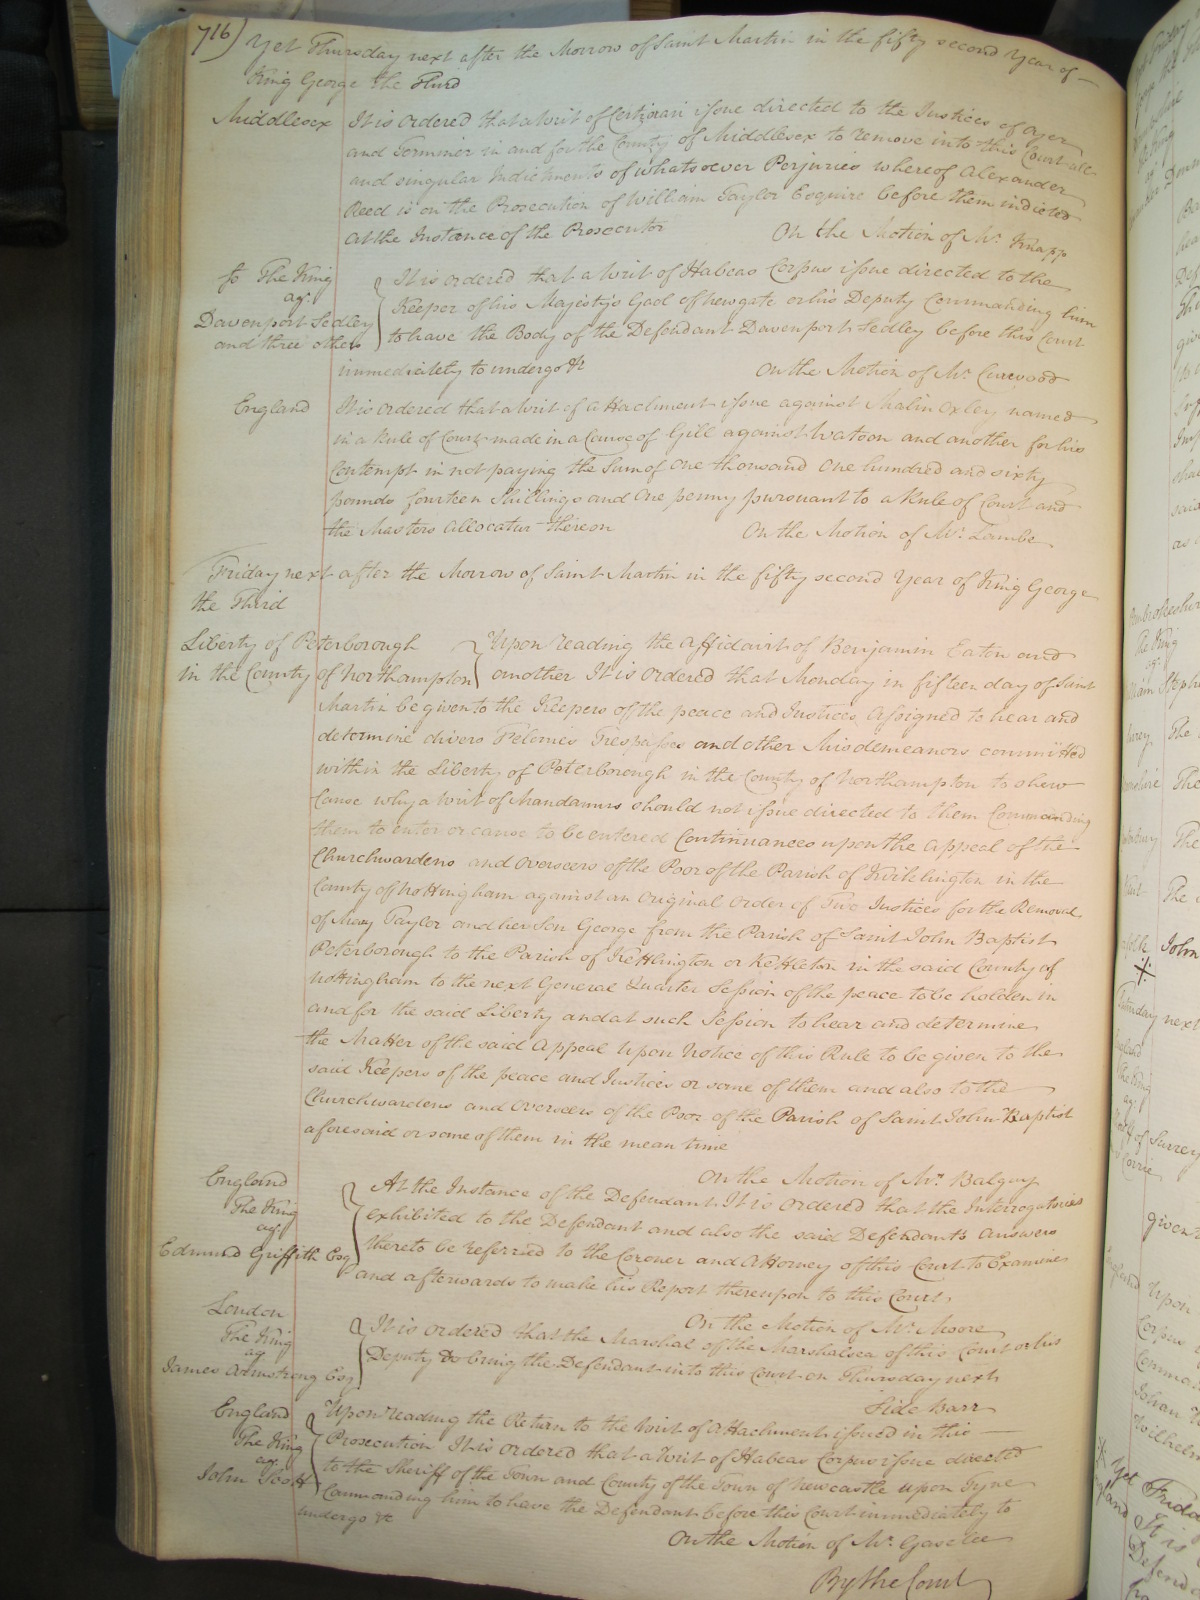 716)
Yet Thursday next after the Morrow of Saint Martin in the fifty second Year of
King George the Third
Middlesex It is ordered that a Writ of Certiorari issue directed to the Justices of Oyer
and Terminer in and for the County of Middlesex to remove into this Court all
and singular Indictments of whatsoever Perjuries whereof Alexander
Reed is on the Prosecution of William Taylor Esquire before them indicted
At the Instance of the Prosecutor On the Motion of Mr. Knapp
The King
agt.
Davenport Sedley
and three others
It is ordered that a Writ of Habeas Corpus issue directed to the
Keeper of his Majesty's Gaol of Newgate or his Deputy Commanding him
to have the Body of the Defendant Davenport Sedley before this Court
immediately to undergo &c On the Motion of Mr. Curwood
England It is ordered that a Writ of Attachment issue against Malin Oxley named
in a Rule of Court made in a Cause of Gill against Watson and another for his
Contempt in not paying the Sum of one thousand one hundred and sixty
pounds fourteen Shillings and One penny pursuant to a Rule of Court and
the Masters Allocatur thereon On the Motion of Mr. Lambe
Friday next after the Morrow of Saint Martin in the fifty second Year of King George
the Third
Liberty of Peterborough
in the County of Northampton
Upon reading the Affidavit of Benjamin Eaton and
another It is Ordered that Monday in fifteen day of Saint
Martin be given to the Keepers of the peace and Justices Assigned to hear and
determine divers Felonies Trespasses and other Misdemeanors committed
within the Liberty of Peterborough in the County of Northampton to shew
Cause why a Writ of Mandamus should not issue directed to them Commanding
them to enter or cause to be entered Continuances upon the Appeal of the
Churchwardens and Overseers of the Poor of the Parish of in the
County of Nottingham against an Original Order of Two Justices for the Removal
of Mary Taylor and her Son George from the Parish of Saint John Baptist
Peterborough to the Parish of Kettlington or Kettleton in the said County of
Nottingham to the next General Quarter Session of the peace to be holden in
and for the said Liberty and at such Session to hear and determine
the Matter of the said Appeal Upon Notice of this Rule to be given to the
said Keepers of the peace and Justices or some of them and also to the
Churchwardens and Overseers of the Poor of the Parish of Saint John Baptist
aforesaid or some of them in the mean time
On the Motion of Mr. Balguy
England
The King
agt.
Edmund Griffith Esq
At the Instance of the Defendant It is Ordered that the Interrogatories
exhibited to the Defendant and also the said Defendants Answers
thereto be referred to the Coroner and Attorney of this Court to Examine
and afterwards to make his Report thereupon to this Court.
On the Motion of Mr. Moore
London
The King
agt
James Armstrong Esq
It is ordered that the Marshal of the Marshalsea of this Court or his
Deputy Do bring the Defendant into this Court on Thursday next
Side Barr
England
The King
agt.
John Scott
Upon reading the Return to the Writ of Attachment issued in this
Prosecution It is ordered that a Writ of Habeas Corpus issue directed
to the Sheriff of the Town and County of the Town of Newcastle upon Tyne
Commanding him to have the Defendant before this Court immediately to
undergo &c
On the Motion of Mr. Gaselee
By the Court